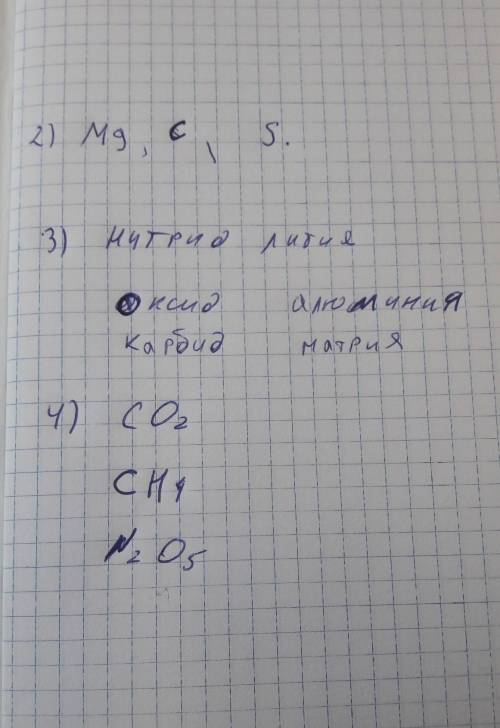 2) Mg, C, S.
3) Нитрид лития
Оксид алюминия
карбид натрия
4) CO₂
CH₄
N₂O₅